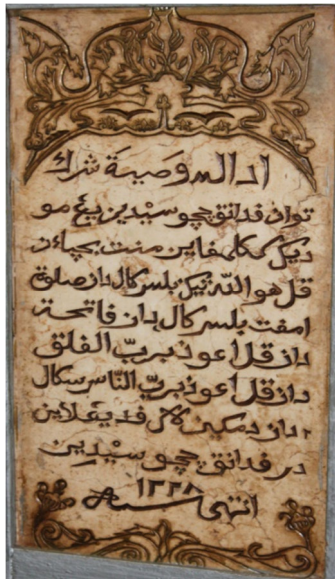 اداله وصية شرك
توان فدانق چچو سيدين يڠ مو
منت بچاءن
قل هو الله تيك بلس كال دان صلوة
امفت بلس كال دان فاتحة
دان قل اعوذ بربّ الفلق
دان قل اعوذ بربّ الناس سكال
دان دمكين فد يڠلاين
در فدانق چچو سيدين
انتهى سنة ١٣٢٨